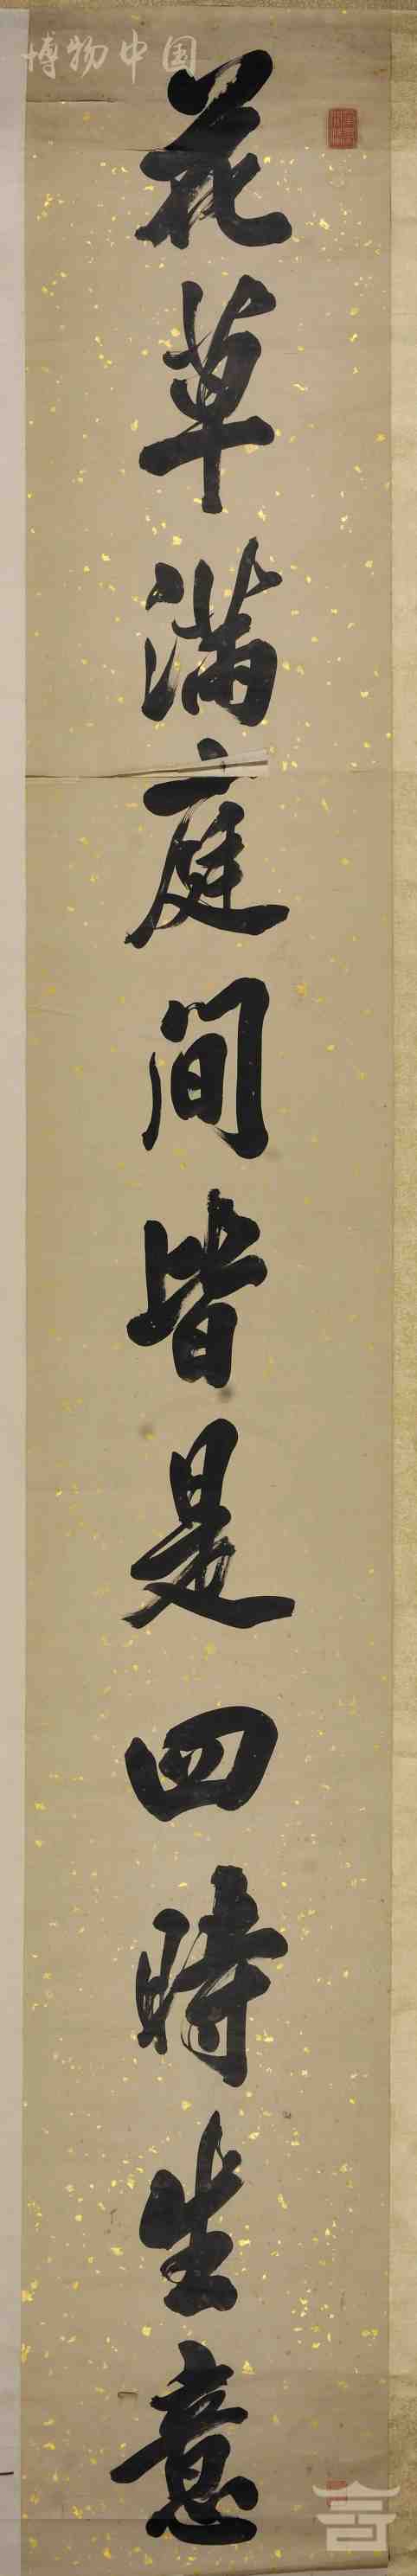 博物中国
花草满庭间皆是四時生意